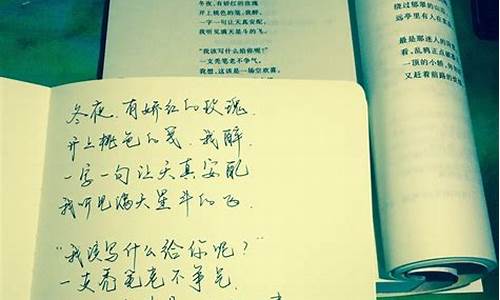 冬夜,有娇红的玫瑰
开上桃色的笺,我醉,
一字一句让天真安配,
我听见满天星斗的飞。
“我该写什么给你呢?”
一支秃笔老不争气。
我想,这该是一场空欢喜,
绕过郁翠的山
远亭里有人在
最是那迷人的
看,乱鸦正点破
一顶的小轿,
又赶着前路的
冬夜,有娇红的玫瑰.
开上桃色的笺,我醉.
一字一句让天真安配
我听见满天星斗的飞.
“我该写什么给你呢?”
一支秃笔老不争气.